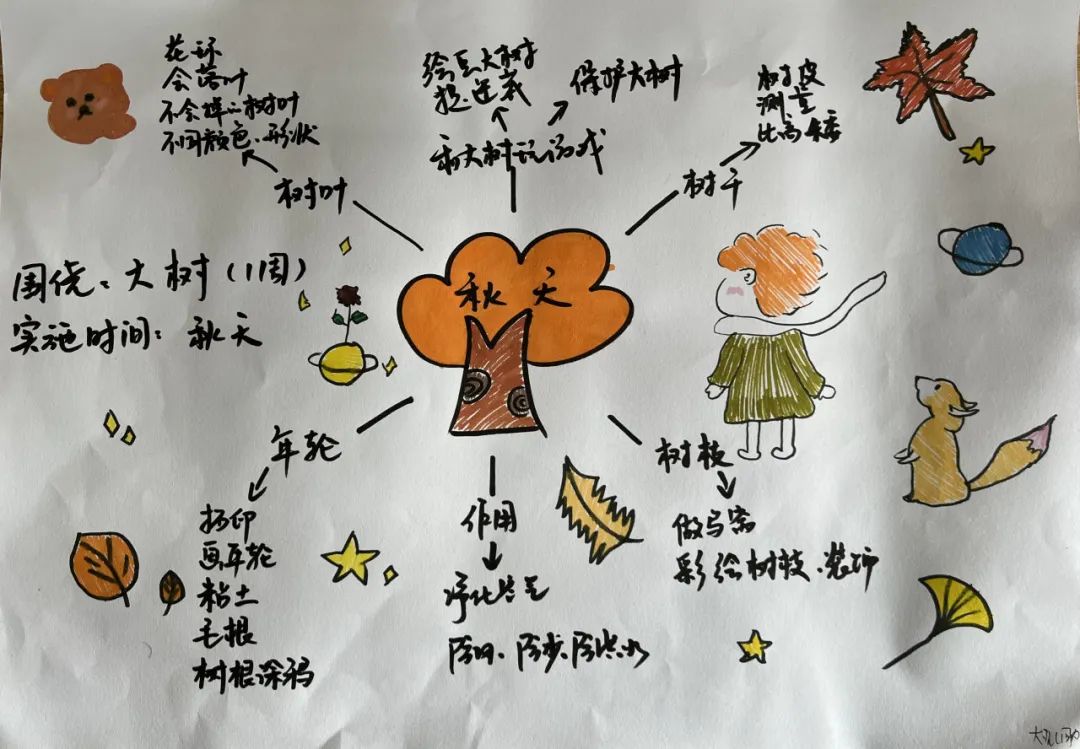 花环
会落叶
不会掉的树叶
不同颜色、形状
树叶
捉迷藏
保护大树
和大树玩游戏
树皮
测量
比高矮
树干
围绕：大树（11周）
实施时间：秋天
秋天
年轮
拓印
画年轮
粘土
毛根
树根涂鸦
作用
净化空气
防风、防沙、防洪水
树枝
做鸟窝
彩绘树枝、装饰